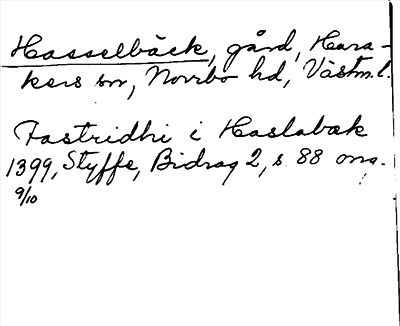 Hasselbäck, gård, Hara-
kers sn, Norrbo hd, Västm.l.
Fastridhi i Haslabæk
1399, Styffe, Bidrag 2, s. 88 om.
9/10